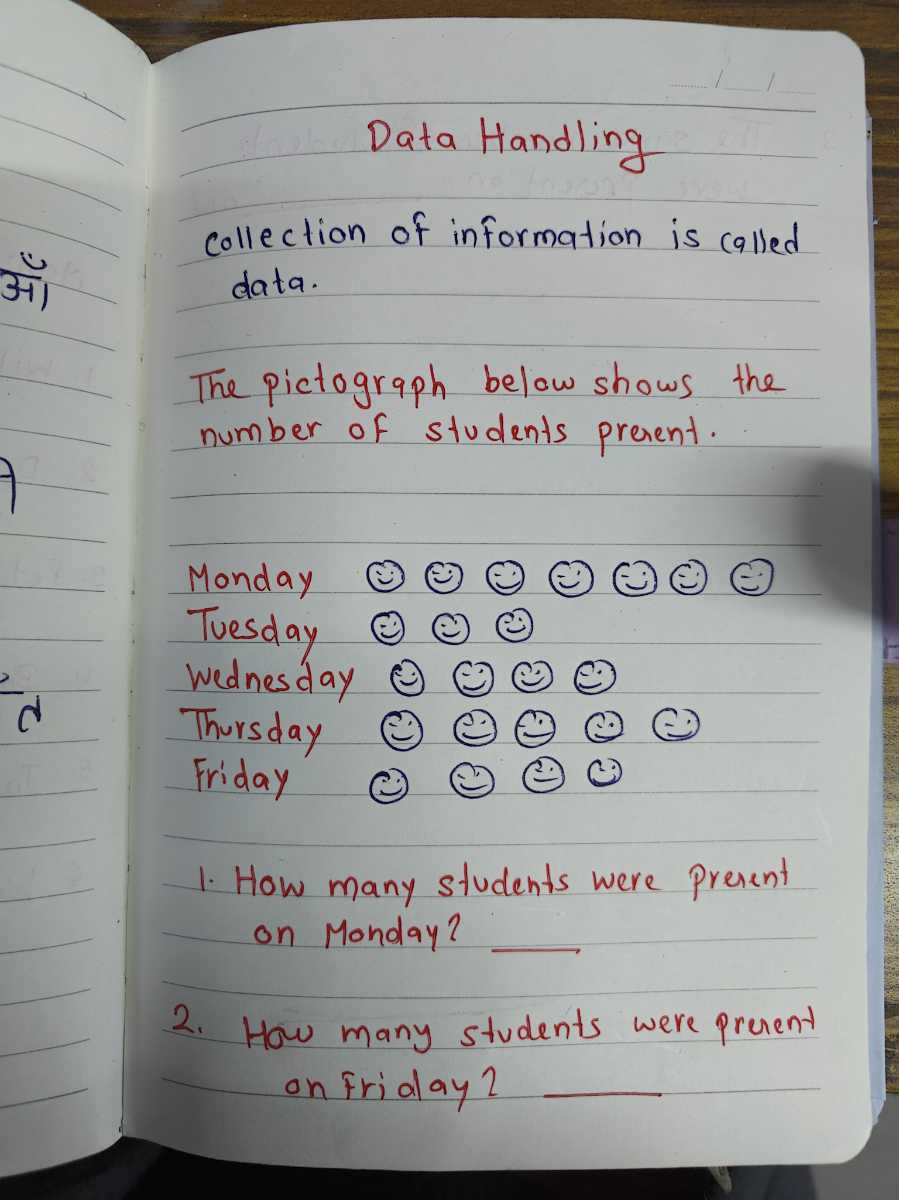 Data Handling
Collection of information is called
data.
The pictograph below shows the
number of students present.
Monday
Tuesday
Wednesday
Thursday
Friday
1. How many students were present
on Monday? ____
2. How many students were present
on Friday? ____